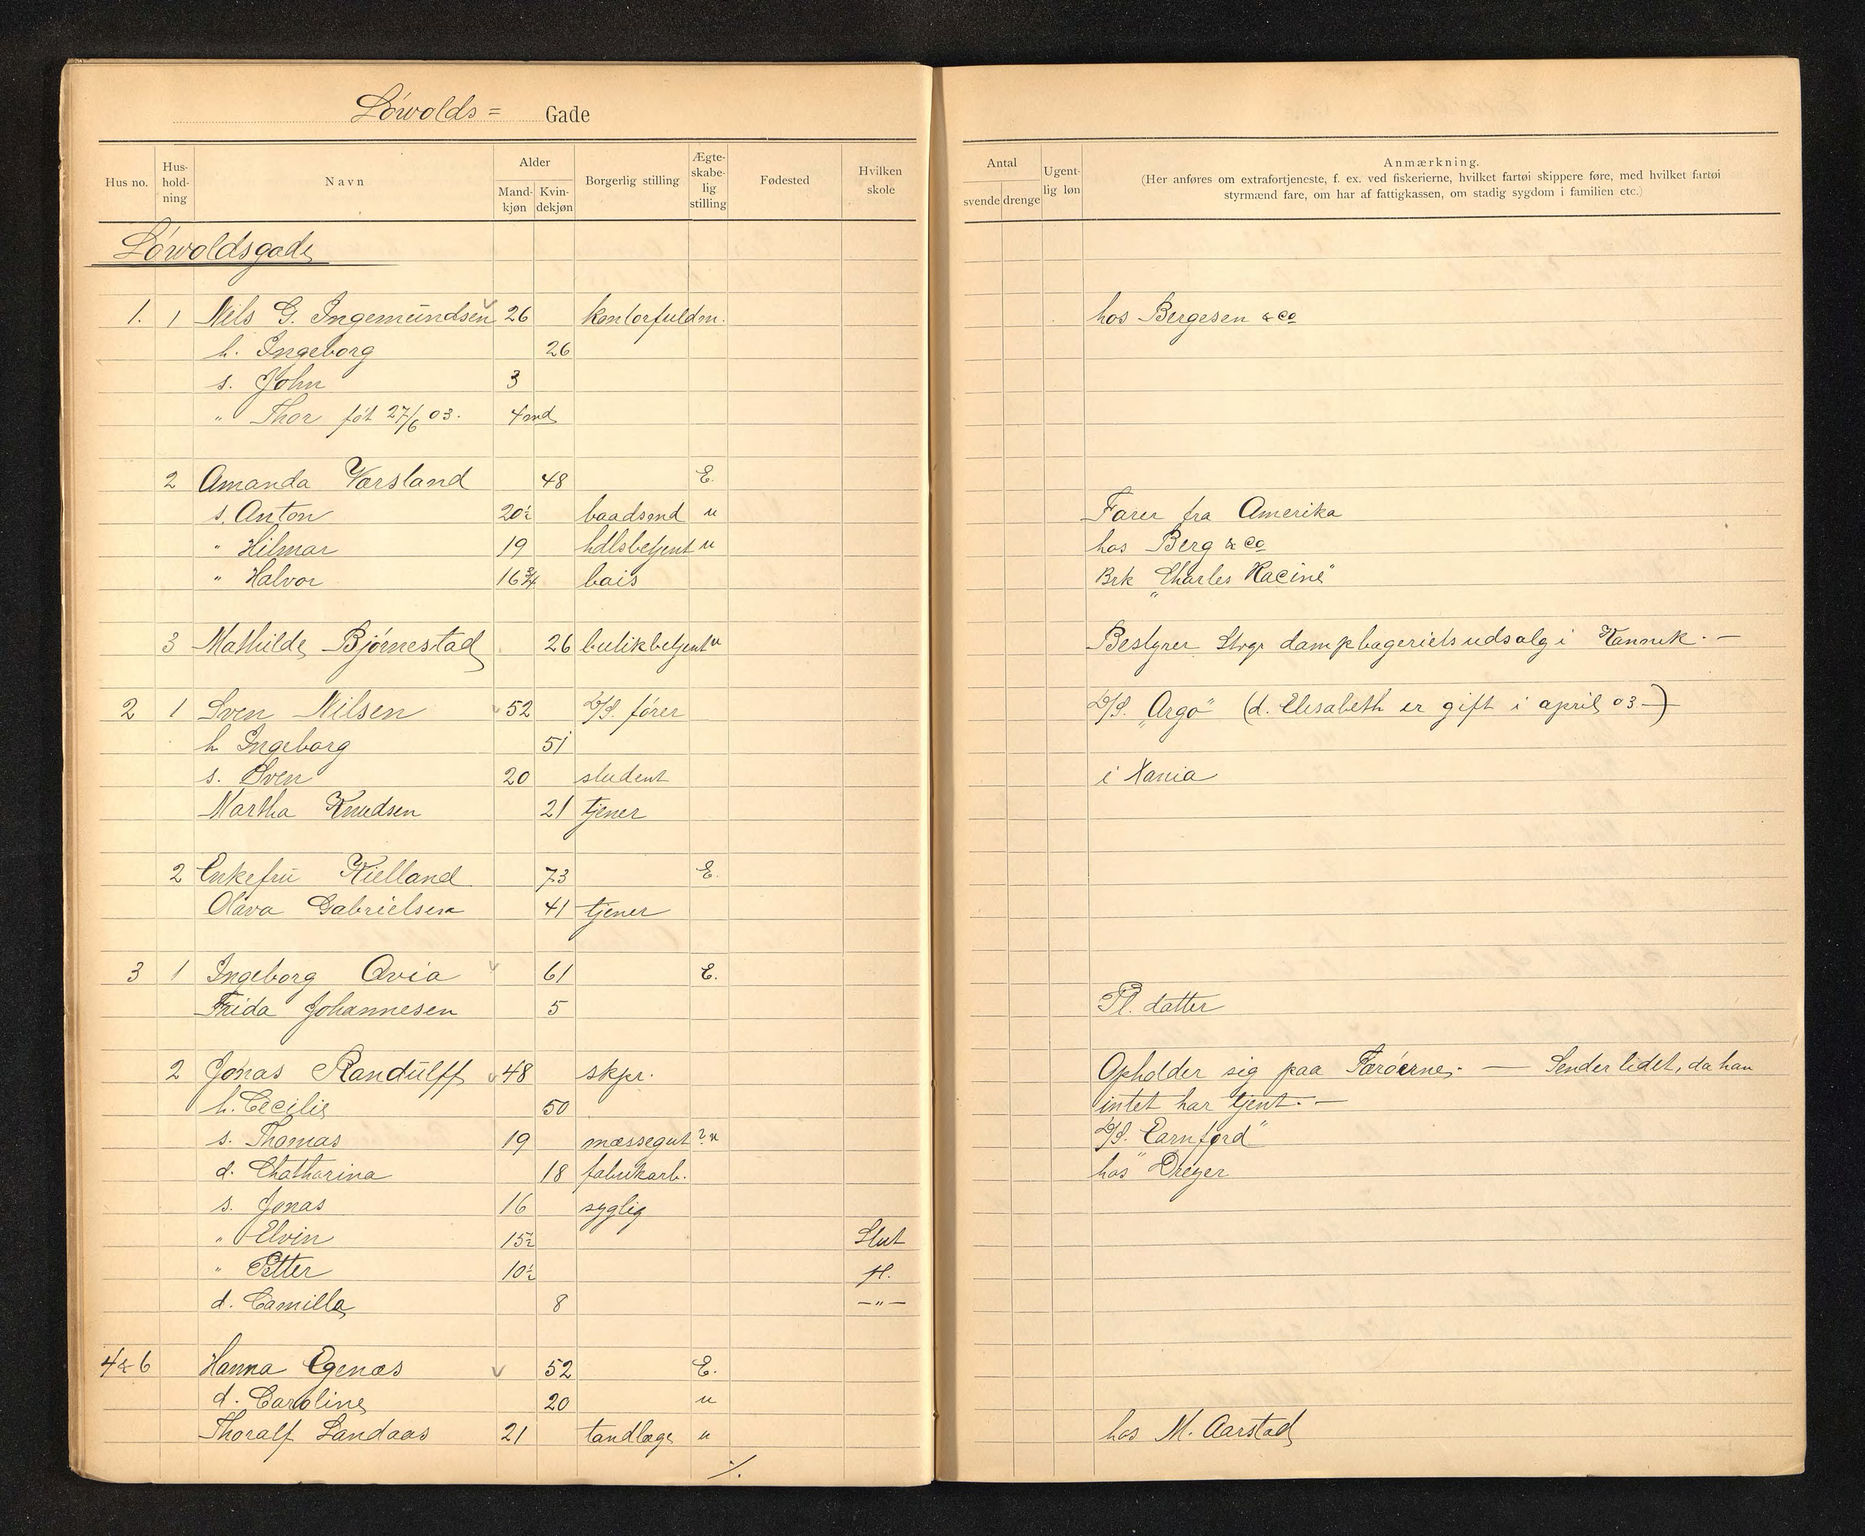 Löwolds= Gade
Hus no. Hus-hold-ning Navn Alder Mand-kjøn Kvin-dekjøn Borgerlig stilling Ægte-skabe-lig stilling Fødested Hvilken skole Antal svende drenge Ugent-lig løn Anmærkning.
(Her anføres om extrafortjeneste, f. ex. ved fiskerierne, hvilket fartøi skippere føre, med hvilket fartøi
styrmænd fare, om har af fattigkassen, om stadig sygdom i familien etc.)
Löwoldsgade
1. 1 Nils G. Ingemundsen 26 kontorfuldm. hos Bergesen & Co
h. Ingeborg 26
s. John 3
" Thor föt 27/6 03. 4 md
2 Amanda Varsland 48 E.
s. Anton 20½ baadsmd u Farer fra Amerika
" Hilmar 19 hdlsbetjent u hos Berg & Co
" Halvor 16¾ bais Brk "Charles Racine"
3 Mathilde Bjørnestad 26 butikbetjent u Bestyrer Stvgr dampbageriets udsalg i Kannik. —
2 1 Sven Nilsen 52 D/S. fører D/S. "Argo" (d. Elisabeth er gift i april 03 —)
h Ingeborg 51
s. Sven 20 student i Xania
Martha Knudsen 21 tjener
2 Enkefru Kielland 73 E.
Olava Gabrielsen 41 tjener
3 1 Ingeborg Avia 61 E.
Frida Johannesen 5 Pl. datter
2 Jonas Randulff 48 skpr. Opholder sig paa Færöerne. — Sender lidet, da han
h. Cecilie 50 intet har tjent. —
s. Thomas 19 mæssegut ? u D/S. "Carnford"
d. Chatharina 18 fabrikarb. hos Dreyer
s. Jonas 16 syglig
" Elvin 15½ Slut
" Petter 10½ H.
d. Camilla 8 —"—
4 & 6 Hanna Egenæs 52 E.
d. Caroline 20 u
Thoralf Landaas 21 tandlæge u hos M. Aarstad
./.